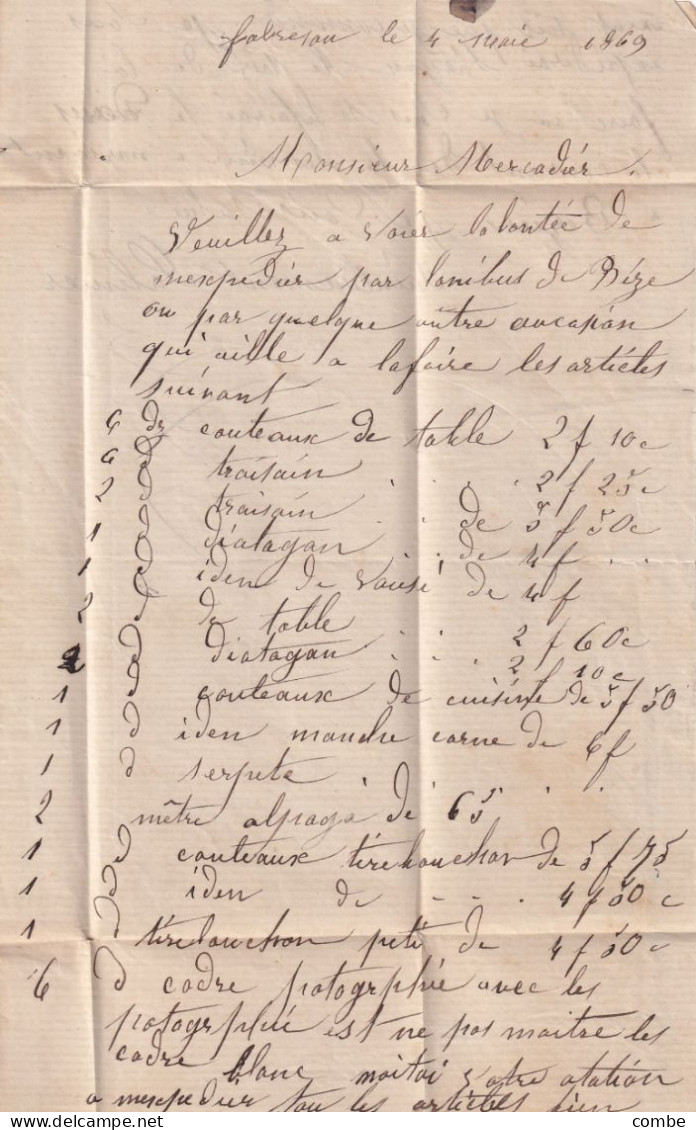 fabresan le 4 maie 1869
Monsieur Mercadier.
Veuillez a voier labontée de
mexpédiér par lonibus de Bize
ou par quelque autre aucasian
qui aille a lafaire les artiéles
suivant
6 dz couteaux de table 2 f 10 c
6 d traisain . . . 2 f 25 c
2 d traisain . . de 5 f 50 c
1 d diatagan . . de 4 f . .
1 d iden de de 4 f
2 d de table . . 2 f 60 c
2 d diatagan . . 2 f 10 c
1 d couteaux de cuisine de 5 f 50
1 d iden manche carne de 6 f
1 d serpete . . . .
2 mêtre alpaga de 65
1 d couteaux tirebouchon de 5 f 75
1 d iden de . . . 4 f 50 c
1 d tirebouchon petit de 4 f 50 c
6 d cadre potogrphié avec les
potogrphié est ne pas maitre les
cadre blanc votre
a mexpedier tou les artiéles bien
delcampe.net
combe